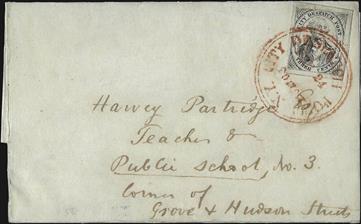 CITY DESPATCH POST
CITY DESPATCH
N.Y.
24
Harvey Partridge
Teacher &
Public School, No. 3.
Corner of
Grove & Hudson Streets